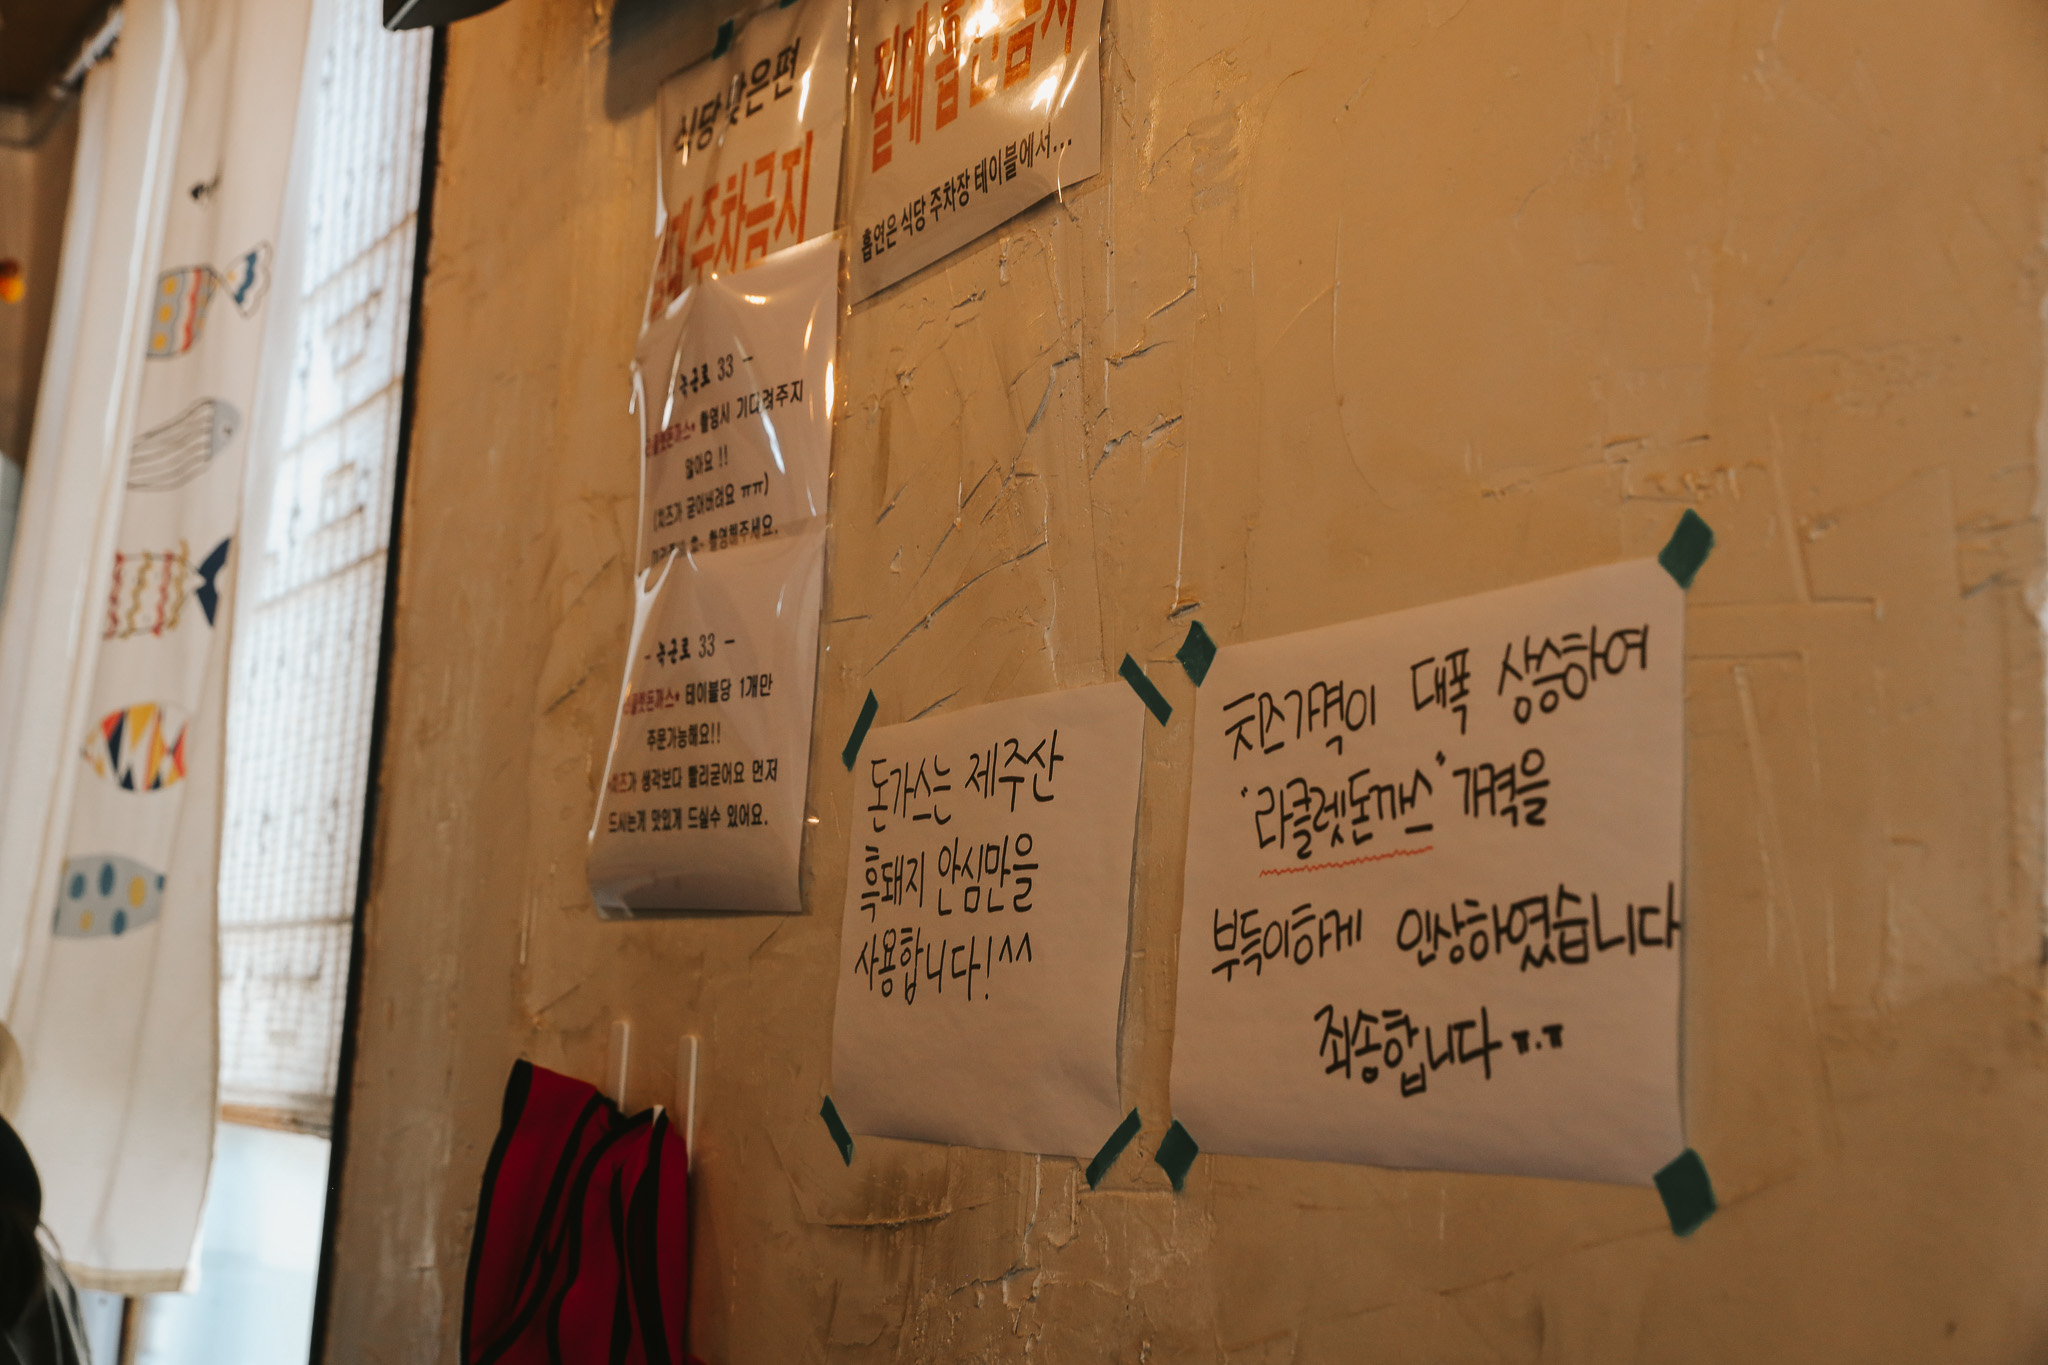 식당 맞은편
절대 주차금지
절대 흡연금지
흡연은 식당 주차장 테이블에서...
녹근로 33 -
라클렛돈까스* 촬영시 기다려주지
않아요 !!
(치즈가 굳어버려요 ㅠㅠ)
촬영해주세요.
- 녹근로 33 -
라클렛돈까스* 테이블당 1개만
주문가능해요!!
치즈가 생각보다 빨리굳어요 먼저
드시는게 맛있게 드실수 있어요.
돈가스는 제주산
흑돼지 안심만을
사용합니다!^^
치즈가격이 대폭 상승하여
"라클렛돈까스" 가격을
부득이하게 인상하였습니다
죄송합니다ㅠ.ㅠ